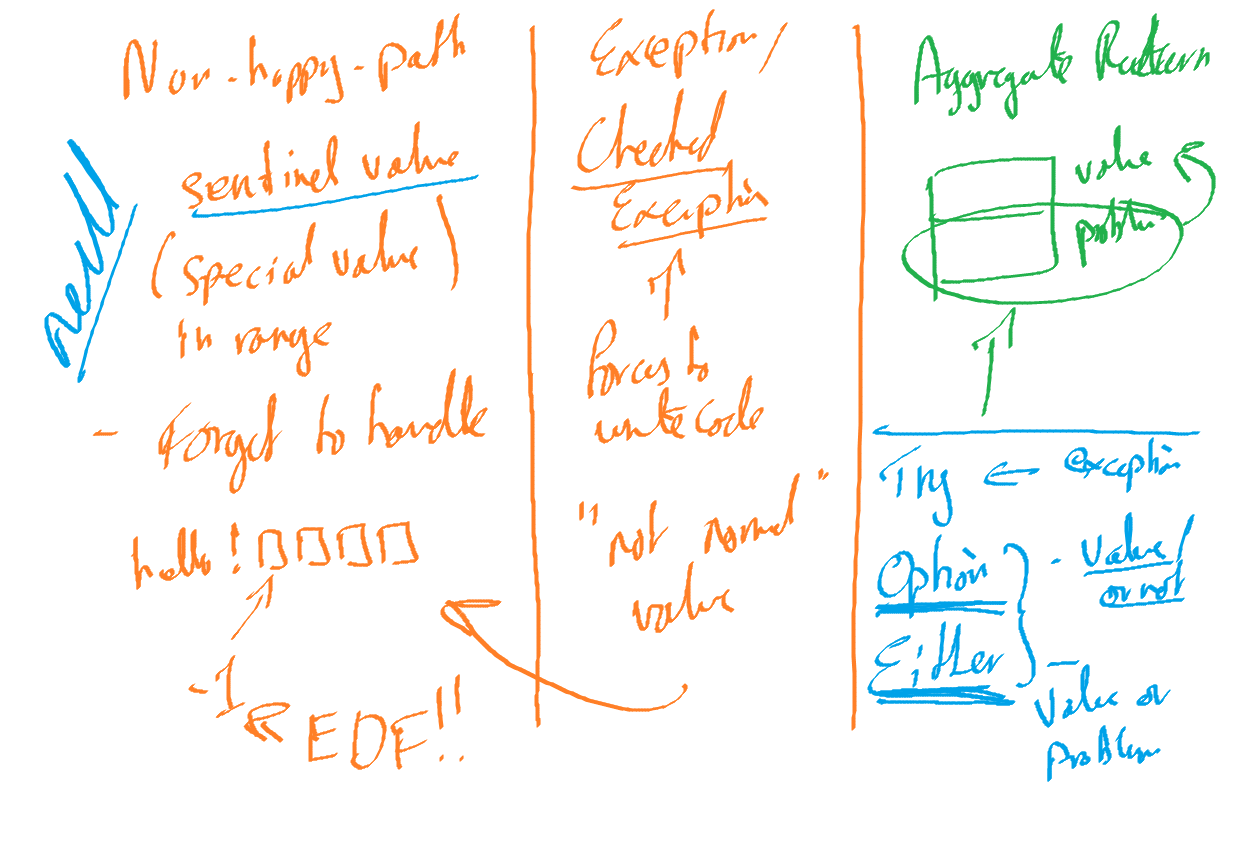 Non-happy-path
null
sentinel value
(special value)
in range
- Forget to handle
hello!
-1
EOF!!
Exception/
Checked
Exception
Forces to
write code
"not normal"
value
Aggregate Return
value
problem
Try ← exception
Option
Either
- value/
or not
- value or
problem